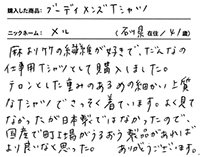 購入した商品：ブーディメンズTシャツ
ニックネーム：メル （石川県在住/41歳）
麻よりケの繊維が好きで、だんなの
仕事用Tシャツとして購入しました。
テロンとした重みのあるめの細かい上質
なTシャツでさっそく着ています。よく見て
なかったが日本製ではなかったので、
国産で町工場がうるおう製品があれば
より良いなと思った。 ありがとうございます。